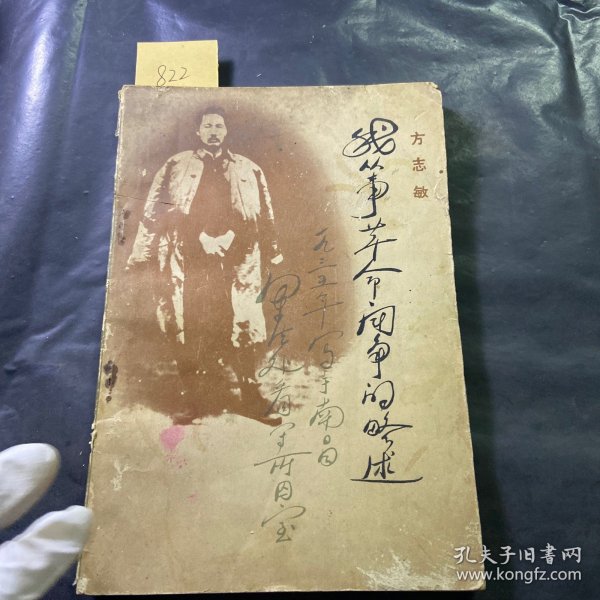 822
方志敏
我从事革命闘争的略述
一九三五年写于南昌
军法处看守所囚室
孔夫子旧书网
www.kongfz.com